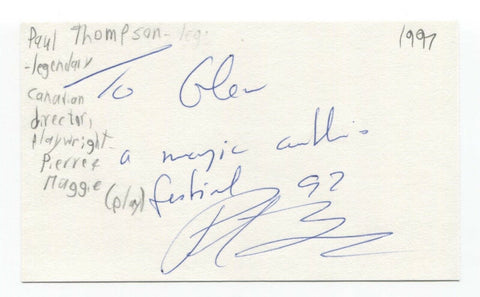 Paul Thompson - leg
1997
-legendary
Canadian
director,
playwright-
Pierre &
Maggie
(play)
To Glen
a magic
festival 97